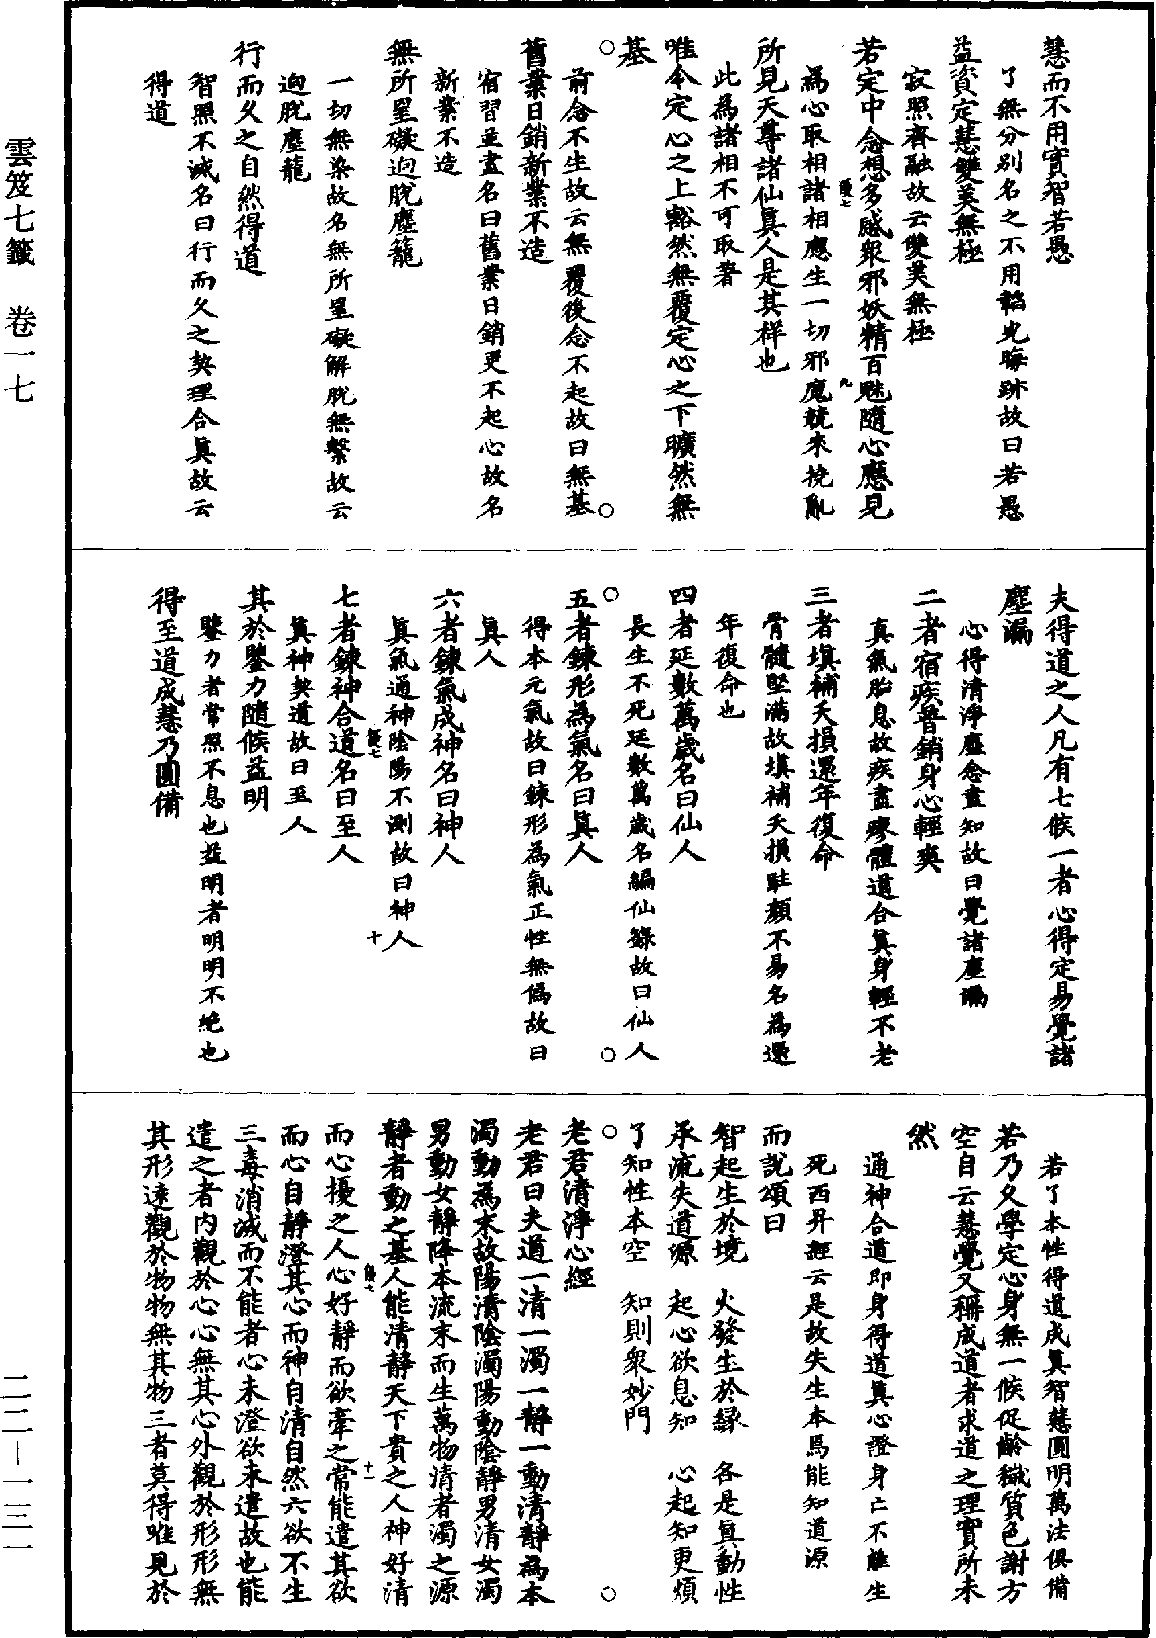 雲笈七籤　卷一七
二二—一三一
慧而不用實智若愚
了無分別名之不用韜光晦跡故曰若愚
益資定慧雙美無極
寂照齊融故云雙美無極
若定中念想多感衆邪妖精百魅隨心應見
為心取相諸相應生一切邪魔競來撓亂
所見天尊諸仙真人是其祥也
此為諸相不可取著
唯令定心之上豁然無覆定心之下曠然無
基
前念不生故云無覆後念不起故曰無基
舊業日銷新業不造
宿習並盡名曰舊業日銷更不起心故名
新業不造
無所罣礙迥脫塵籠
一切無染故名無所罣礙解脫無繫故云
迥脫塵籠
行而久之自然得道
智照不滅名曰行而久之契理合真故云
得道
夫得道之人凡有七候一者心得定易覺諸
塵漏
心得清淨塵念盡知故曰覺諸塵漏
二者宿疾普銷身心輕爽
真氣胎息故疾盡瘳體道合真身輕不老
三者填補夭損還年復命
骨髓堅滿故填補夭損駐顏不易名為還
年復命也
四者延數萬歲名曰仙人
長生不死延數萬歲名編仙籙故曰仙人
五者鍊形為氣名曰真人
得本元氣故曰鍊形為氣正性無偽故曰
真人
六者鍊氣成神名曰神人
真氣通神陰陽不測故曰神人
七者鍊神合道名曰至人
真神契道故曰至人
其於鑒力隨候益明
鑒力者常照不息也益明者明明不絕也
得至道成慧乃圓備
若了本性得道成真智慧圓明萬法俱備
若乃久學定心身無一候促齡穢質色謝方
空自云慧覺又稱成道者求道之理實所未
然
通神合道即身得道真心證身亡不離生
死西昇經云是故失生本焉能知道源
而說頌曰
智起生於境　火發生於緣　各是真動性
承流失道源　起心欲息知　心起知更煩
了知性本空　知則衆妙門
老君清淨心經
老君曰夫道一清一濁一靜一動清靜為本
濁動為末故陽清陰濁陽動陰靜男清女濁
男動女靜降本流末而生萬物清者濁之源
靜者動之基人能清靜天下貴之人神好清
而心擾之人心好靜而欲牽之常能遣其欲
而心自靜澄其心而神自清自然六欲不生
三毒消滅而不能者心未澄欲未遣故也能
遣之者內觀於心心無其心外觀於形形無
其形遠觀於物物無其物三者莫得唯見於